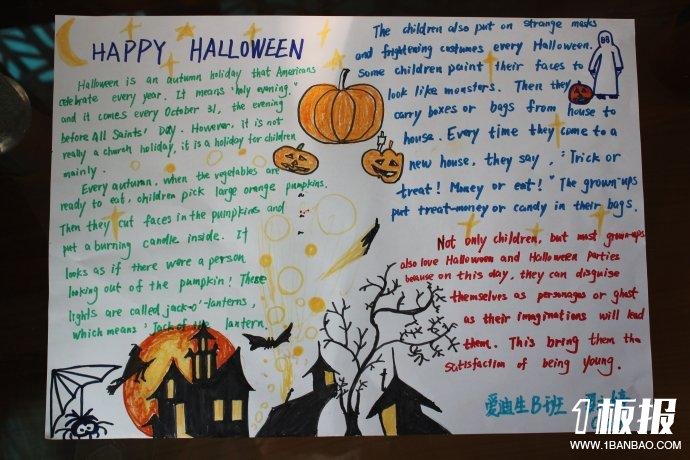 HAPPY HALLOWEEN
Halloween is an autumn holiday that Americans
celebrate every year. It means "holy evening."
and it comes every October 31, the evening
before All Saints' Day. However, it is not
really a church holiday, it is a holiday for children
mainly.
Every autumn, when the vegetables are
ready to eat, children pick large orange pumpkins.
Then they cut faces in the pumpkins and
put a burning candle inside. It
looks as if there were a person
looking out of the pumpkin! These
lights are called jack-o'-lanterns,
which means "Jack of the lantern.
The children also put on strange masks
and frightening costumes every Halloween.
Some children paint their faces to
look like monsters. Then they
carry boxes or bags from house to
house. Every time they come to a
new house, they say, "Trick or
treat! Money or eat!" The grown-ups
put treat-money or candy in their bags.
Not only children, but most grown-ups
also love Halloween and Halloween parties
because on this day, they can disguise
themselves as personages or ghost
as their imaginations will lead
them. This bring them the
satisfaction of being young.
爱迪生B班
1板报
WWW.1BANBAO.COM